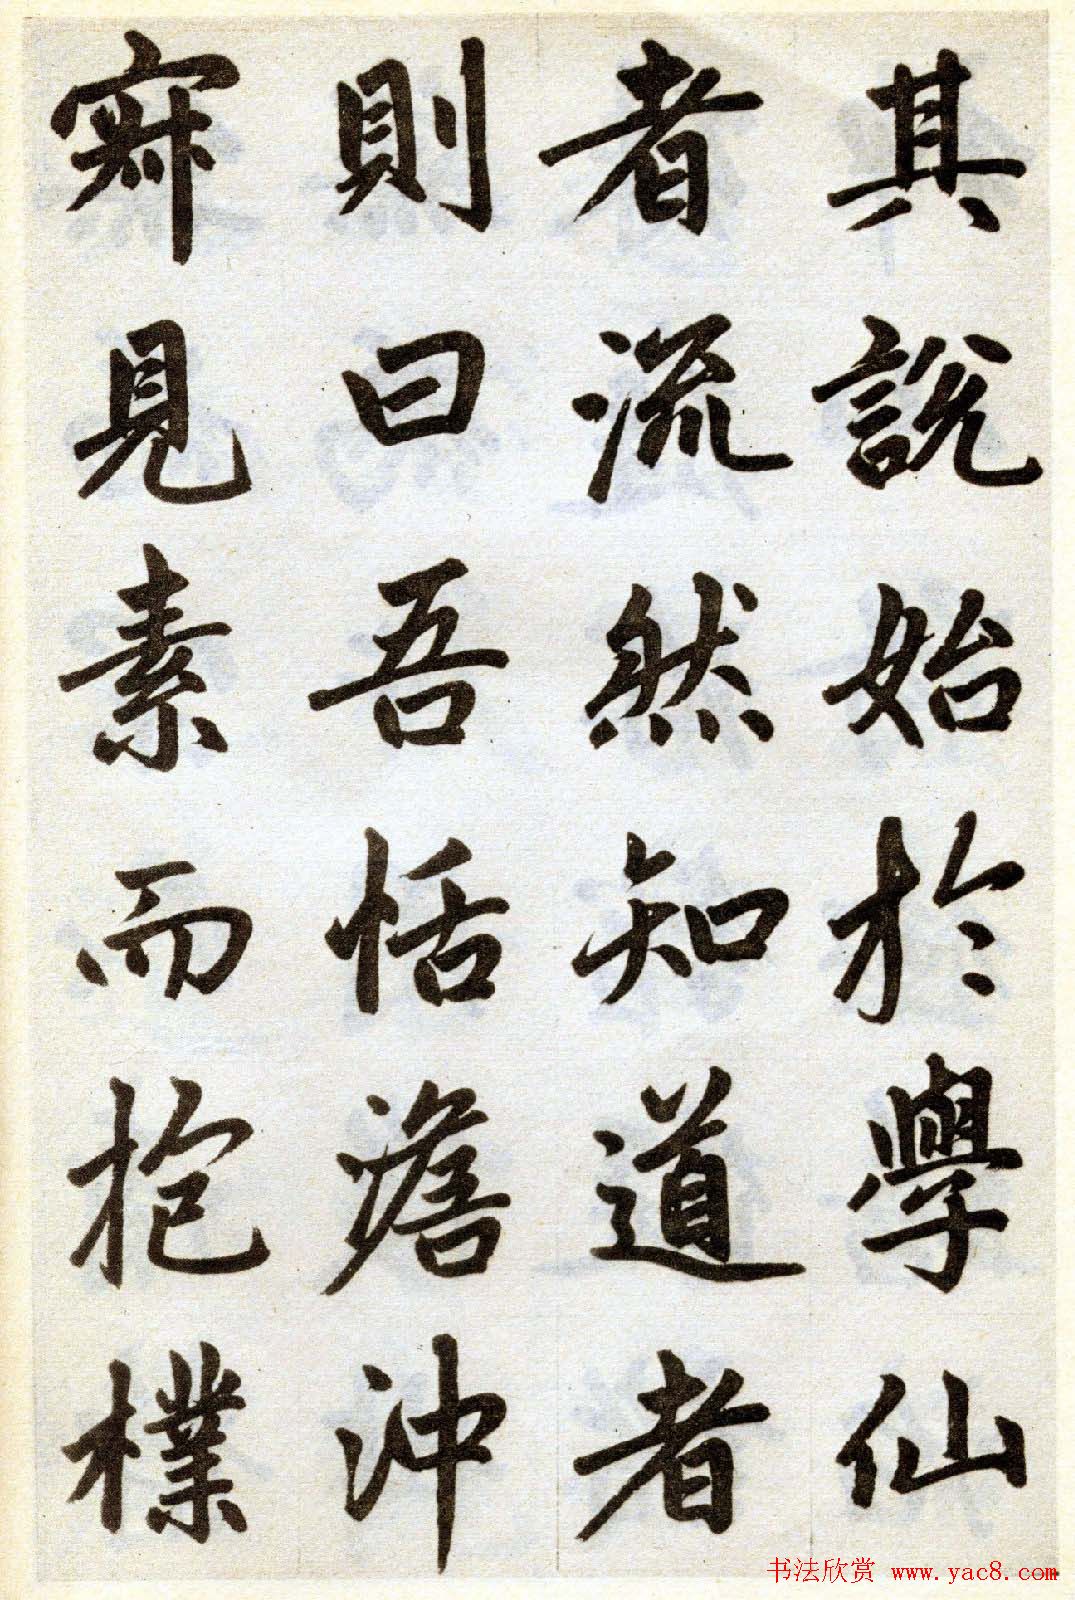 其說始於學仙
者流然知道者
則曰吾恬澹沖
寂見素而抱樸
书法欣赏 www.yac8.com